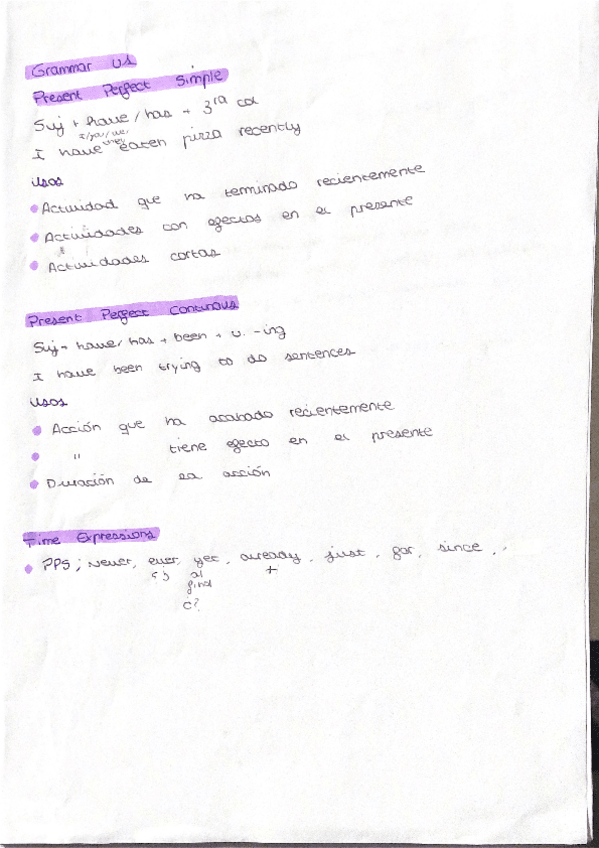 Grammar U1
Present Perfect Simple
Suj + have / has + 3ra col
I / you / we /
they
I have eaten pizza recently
Usos
• Actividad que ha terminado recientemente
• Actividades con efectos en el presente
• Actividades cortas
Present Perfect Continous
Suj + have / has + been + v. -ing
I have been trying to do sentences
Usos
• Acción que ha acabado recientemente
• " tiene efecto en el presente
• Duración de la acción
Time Expressions
• PPS; Never, ever, yet, already, just, for, since, ..
¿? al +
final
¿?